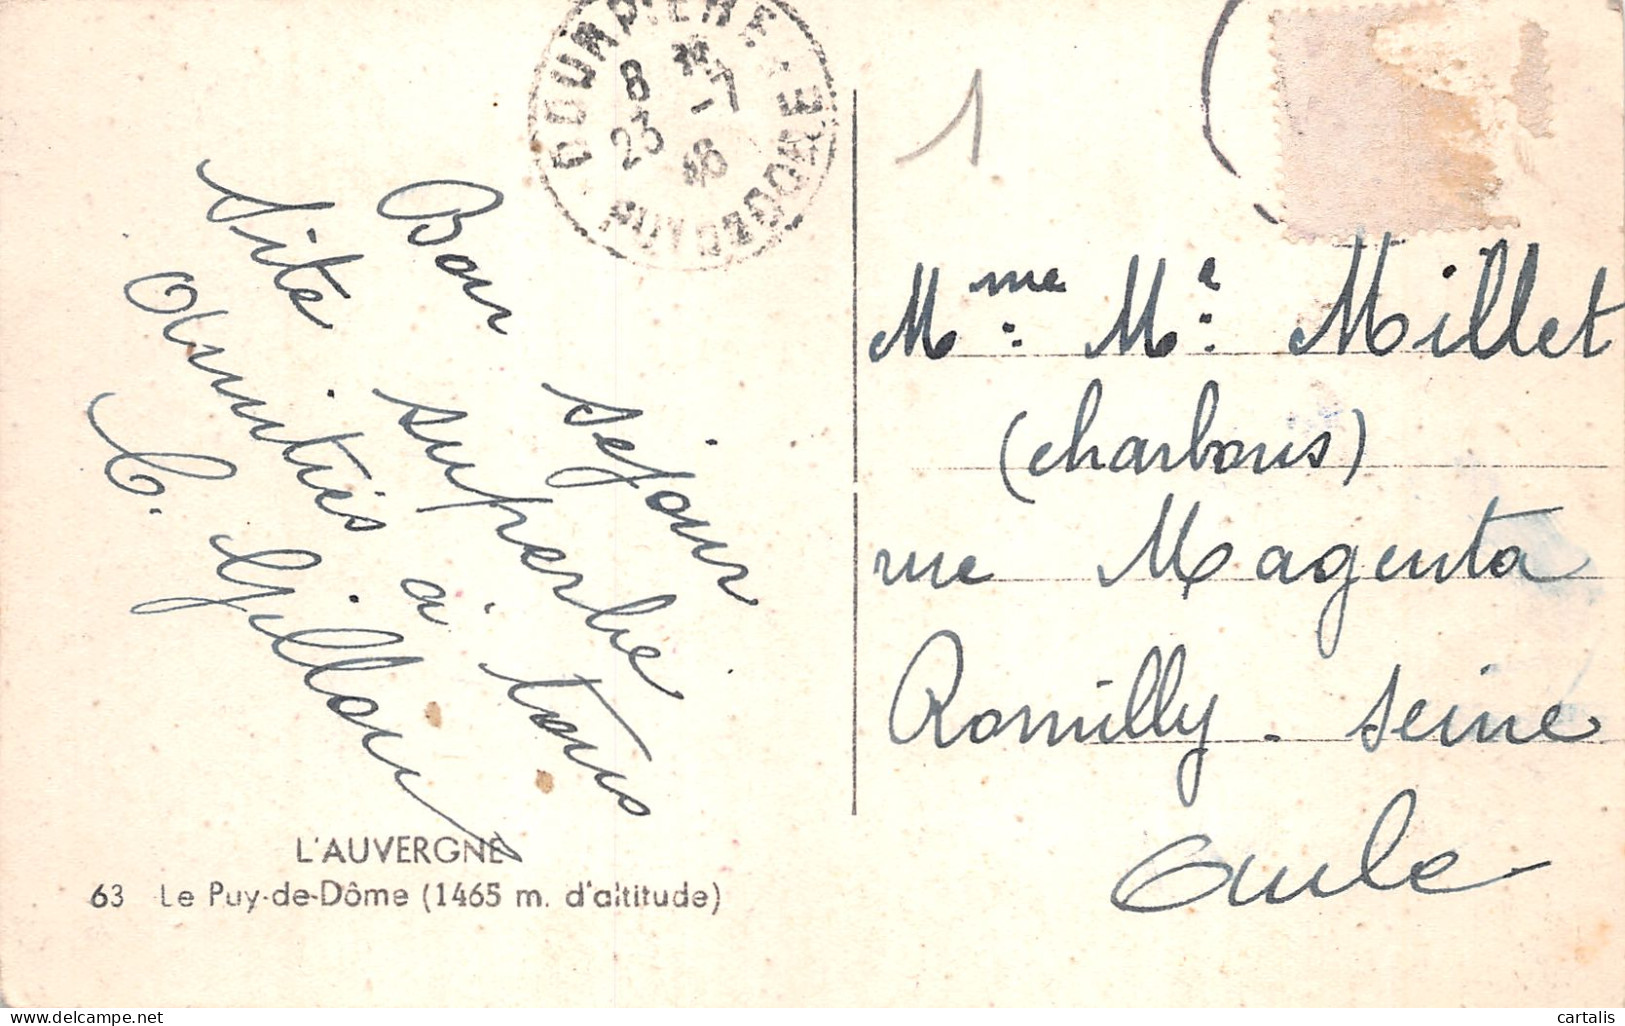 COURPIERE
PUY DE DOME
8 H
23 - 7
1
Bon séjour
Site superbe
Amitiés à tous
C. Gillon
L'AUVERGNE
63 Le Puy-de-Dôme (1465 m. d'altitude)
Mme. Mr. Millet
(charbons)
rue Magenta
Romilly. Seine
Aube
delcampe.net
cartalis